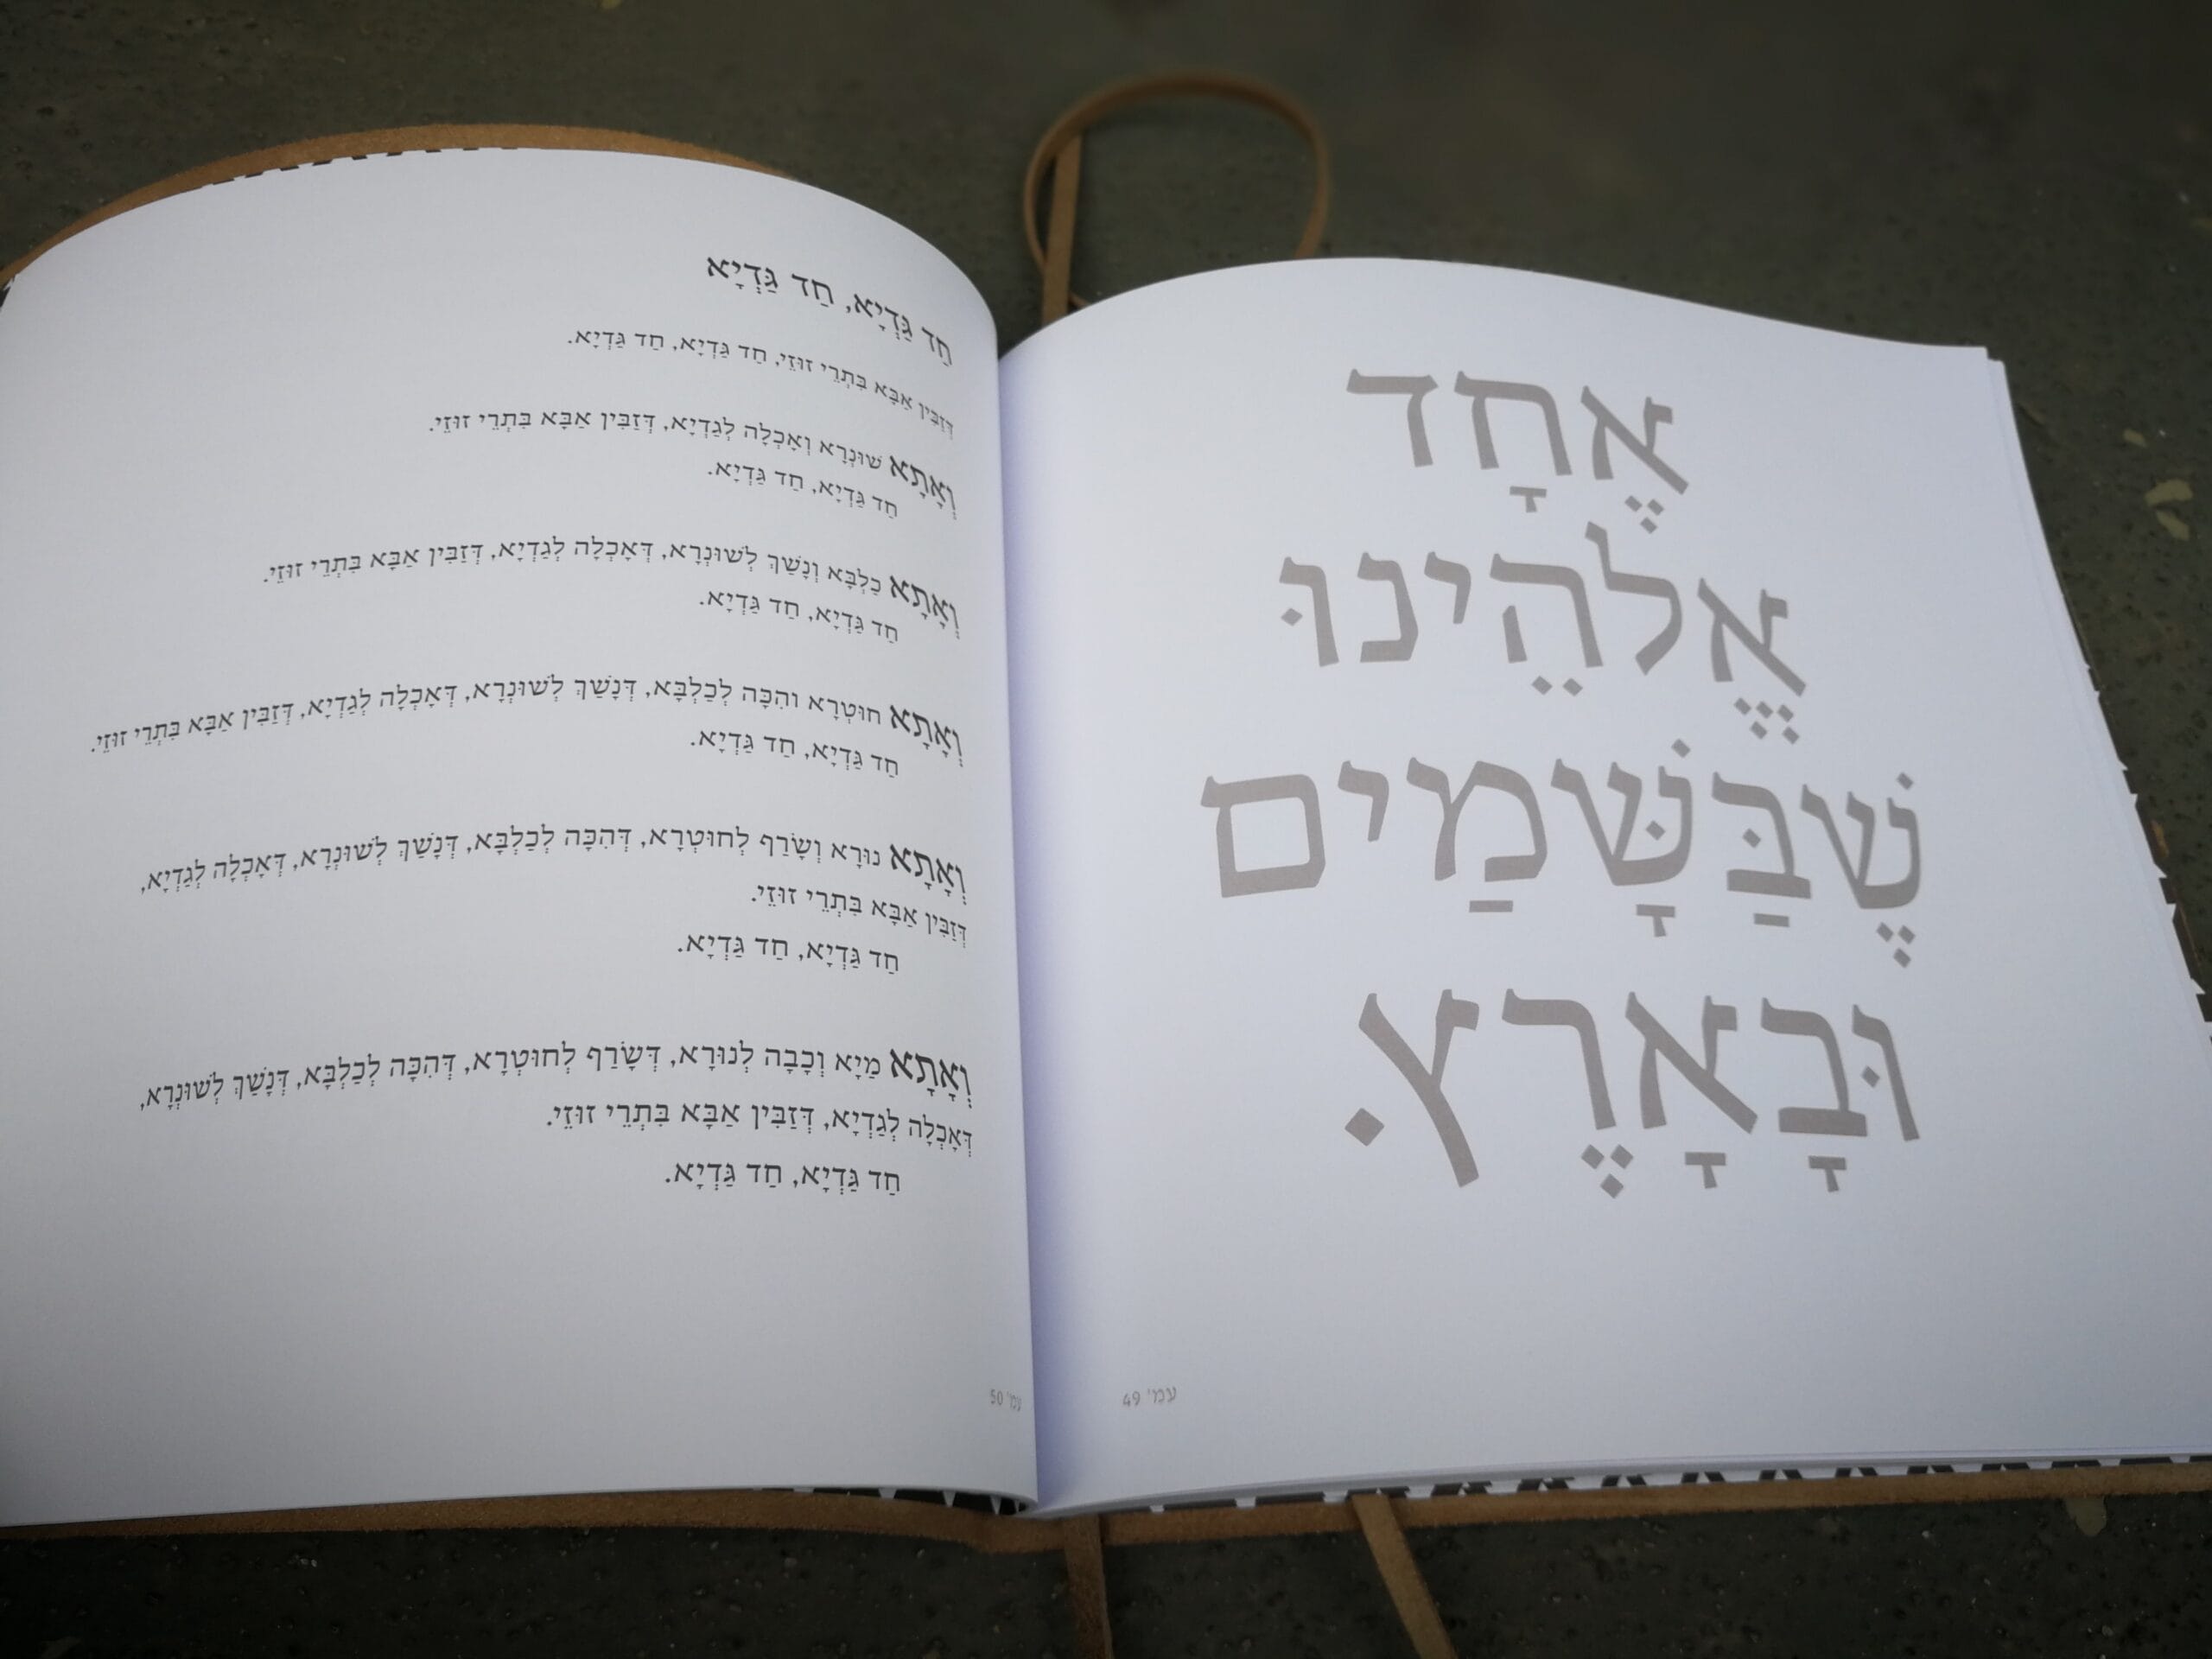 אֶחָד
אֱלֹהֵינוּ
שֶׁבַּשָּׁמַיִם
וּבָאָרֶץ.
עמ' 49
חַד גַּדְיָא, חַד גַּדְיָא
דְּזַבִּין אַבָּא בִּתְרֵי זוּזֵי, חַד גַּדְיָא, חַד גַּדְיָא.
וְאָתָא שׁוּנְרָא וְאָכְלָה לְגַדְיָא, דְּזַבִּין אַבָּא בִּתְרֵי זוּזֵי.
חַד גַּדְיָא, חַד גַּדְיָא.
וְאָתָא כַלְבָּא וְנָשַׁךְ לְשׁוּנְרָא, דְּאָכְלָה לְגַדְיָא, דְּזַבִּין אַבָּא בִּתְרֵי זוּזֵי.
חַד גַּדְיָא, חַד גַּדְיָא.
וְאָתָא חוּטְרָא והִכָּה לְכַלְבָּא, דְּנָשַׁךְ לְשׁוּנְרָא, דְּאָכְלָה לְגַדְיָא, דְּזַבִּין אַבָּא בִּתְרֵי זוּזֵי.
חַד גַּדְיָא, חַד גַּדְיָא.
וְאָתָא נוּרָא וְשָׂרַף לְחוּטְרָא, דְּהִכָּה לְכַלְבָּא, דְּנָשַׁךְ לְשׁוּנְרָא, דְּאָכְלָה לְגַדְיָא,
דְּזַבִּין אַבָּא בִּתְרֵי זוּזֵי.
חַד גַּדְיָא, חַד גַּדְיָא.
וְאָתָא מַיָא וְכָבָה לְנוּרָא, דְּשָׂרַף לְחוּטְרָא, דְּהִכָּה לְכַלְבָּא, דְּנָשַׁךְ לְשׁוּנְרָא,
דְּאָכְלָה לְגַדְיָא, דְּזַבִּין אַבָּא בִּתְרֵי זוּזֵי.
חַד גַּדְיָא, חַד גַּדְיָא.
עמ' 50